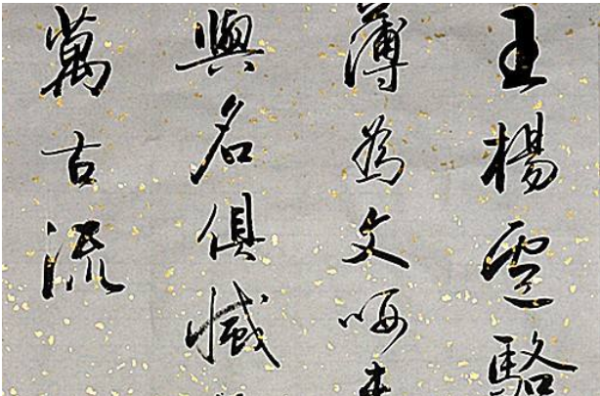 王楊盧駱
薄為文哂
與名俱滅
萬古流